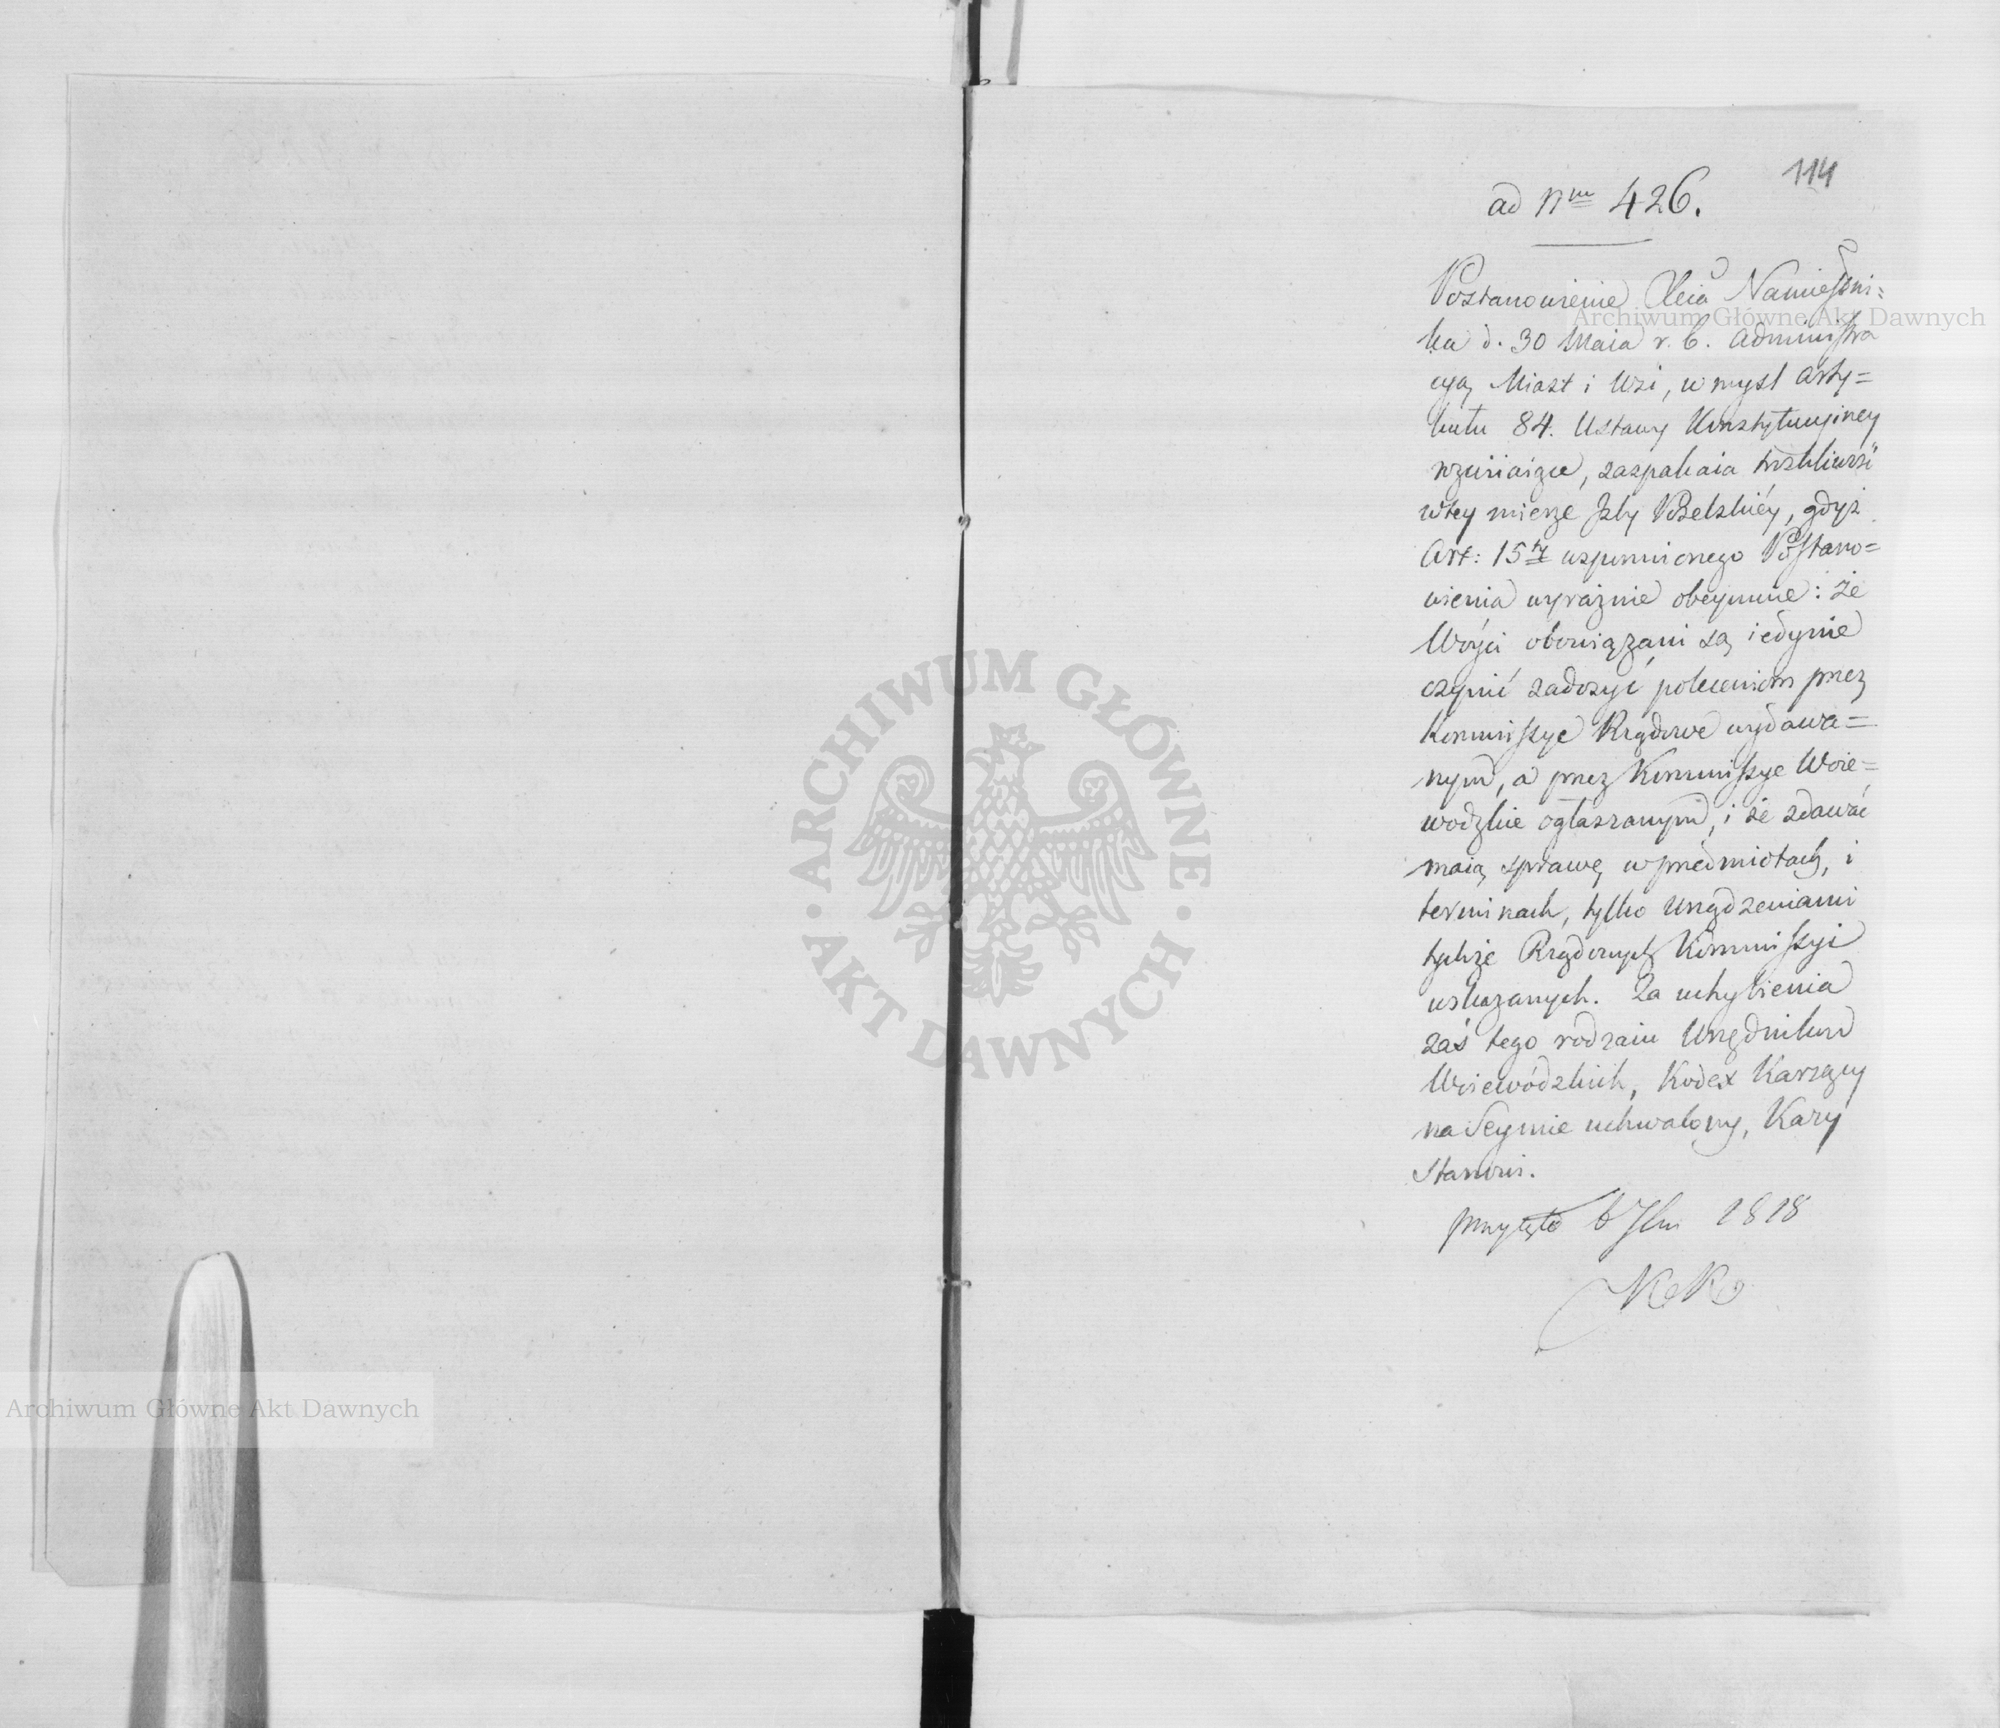 114
ad Nm 426.
Postanowienie Xcia Namiestni=
ka d. 30 Maia r. b. Administra
cyą Miast i Wsi, w mysl Arty=
kułu 84. Ustawy Konstytucyiney
rządzące, zaspakaia troskliwość
w tey mierze Izby Poselskiéy, gdyż
Art: 15ty wspomnionego Postano=
wienia wyraźnie obeymuie: że
Wóyci obowiązani są iedynie
czynić zadosyć poleceniom przez
Kommissye Rządowe wydawa=
nym, a przez Kommissye Woie=
wodzkie ogłaszanym, i że zdawać
maią sprawę w przedmiotach, i
terminach, tylko urządzeniami
tychże Rządowych Kommissyi
wskazanych. Za uchybienia
zaś tego rodzaiu Urzędników
Woiewódzkich, Kodex Karzący
na Seymie uchwalony, Kary
stanowi.
przyięto 1818
Archiwum Główne Akt Dawnych
ARCHIWUM GŁÓWNE · AKT DAWNYCH ·
Archiwum Główne Akt Dawnych